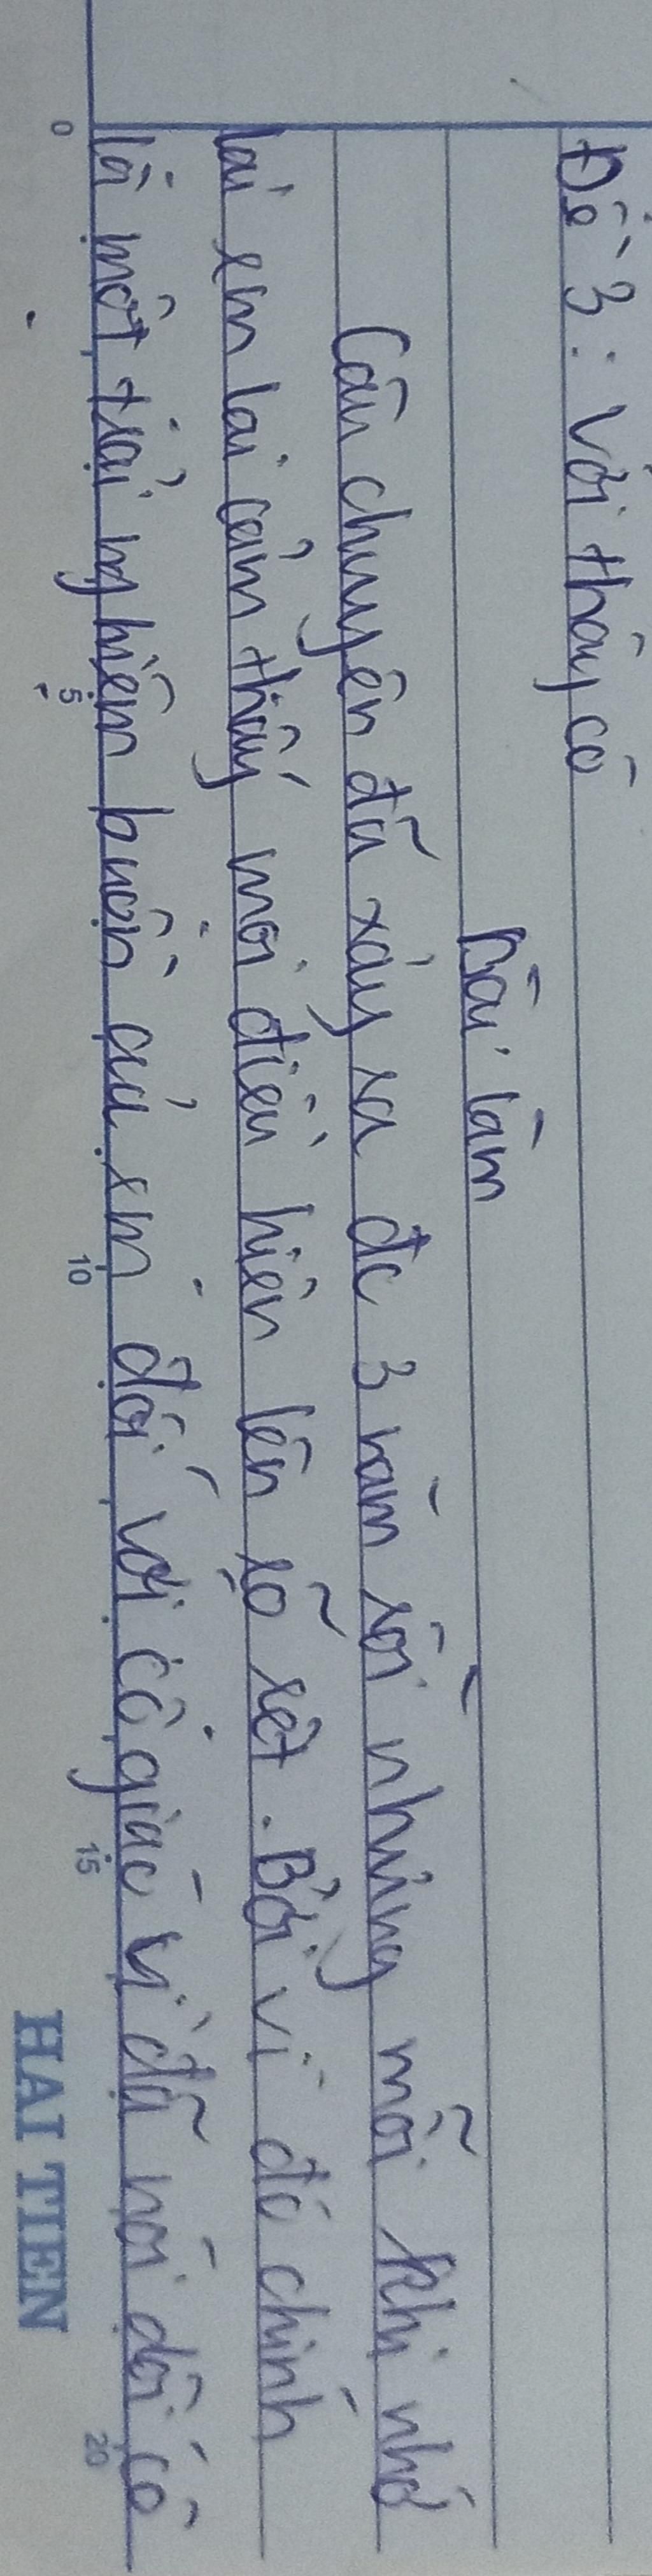 Đề 3: Với thầy cô
Bài làm
Câu chuyện đã xảy ra đc 3 năm rồi nhưng mỗi khi nhớ
lại em lại cảm thấy mọi điều hiện lên rõ rệt. Bởi vì đó chính
là một trải nghiệm buồn của em đối với cô giáo vì đã nói dối cô
0 5 10 15 20
HAI TIEN